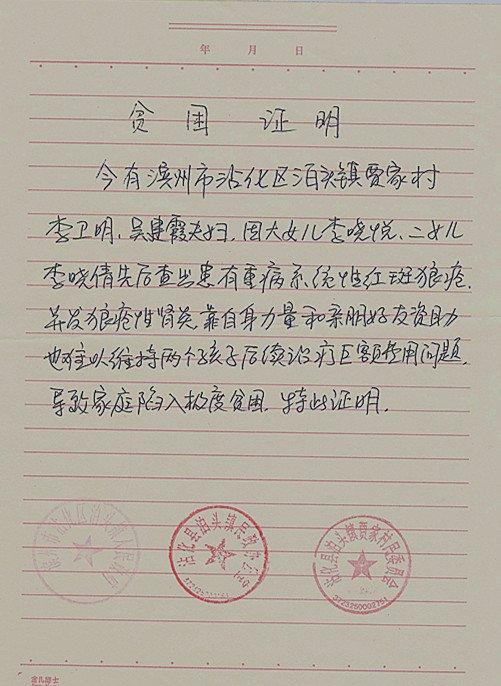 年 月 日
贫困 证明
今有滨州市沾化区泊头镇贾家村
李卫明、吴建霞夫妇,因大女儿李晓悦、二女儿
李晓倩先后查出患有重病系统性红斑狼疮,
并发狼疮性肾炎靠自身力量和亲朋好友资助
也难以维持两个孩子后续治疗巨额费用问题,
导致家庭陷入极度贫困,特此证明.
沾化县泊头镇民政办公室
沾化县泊头镇贾家村村民委员会
3723250002751